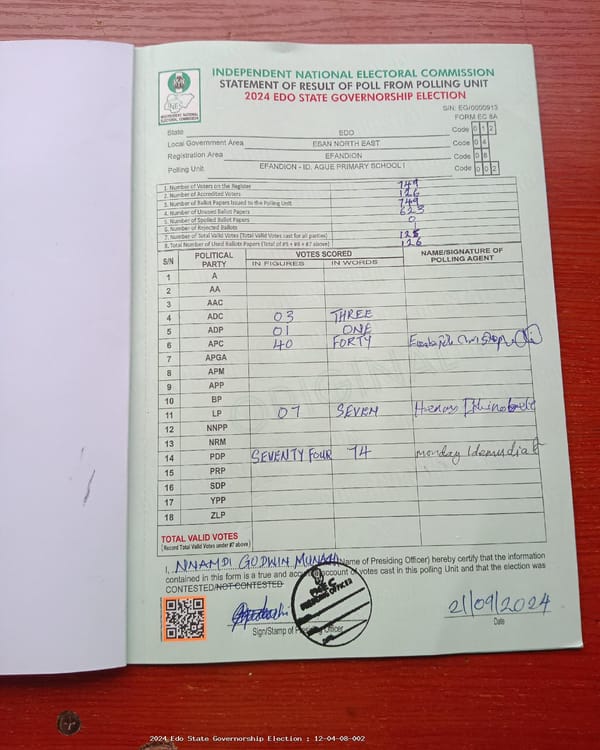 INDEPENDENT NATIONAL ELECTORAL COMMISSION
STATEMENT OF RESULT OF POLL FROM POLLING UNIT
2024 EDO STATE GOVERNORSHIP ELECTION
INEC
INDEPENDENT NATIONAL ELECTORAL COMMISSION
S/N: EG/0000913
FORM EC 8A
State EDO Code 0 1 2
Local Government Area ESAN NORTH EAST Code 0 4
Registration Area EFANDION Code 0 8
Polling Unit EFANDION - ID. AGUE PRIMARY SCHOOL I Code 0 0 2
1. Number of Voters on the Register 749
2. Number of Accredited Voters 126
3. Number of Ballot Papers Issued to the Polling Unit 749
4. Number of Unused Ballot Papers 623
5. Number of Spoiled Ballot Papers 0
6. Number of Rejected Ballots 1
7. Number of Total Valid Votes (Total Valid Votes cast for all parties) 125
8. Total Number of Used Ballots Papers (Total of #5 + #6 + #7 above) 126
S/N POLITICAL PARTY VOTES SCORED NAME/SIGNATURE OF POLLING AGENT
IN FIGURES IN WORDS
1 A
2 AA
3 AAC
4 ADC 03 THREE
5 ADP 01 ONE
6 APC 40 FORTY
7 APGA
8 APM
9 APP
10 BP
11 LP 07 SEVEN Henry
12 NNPP
13 NRM
14 PDP SEVENTY FOUR 74 monday
15 PRP
16 SDP
17 YPP
18 ZLP
TOTAL VALID VOTES
(Record Total Valid Votes under #7 above)
I, NNAMDI GODWIN (Name of Presiding Officer) hereby certify that the information
contained in this form is a true and account of votes cast in this polling Unit and that the election was
CONTESTED/NOT CONTESTED
PRESIDING OFFICER
21/09/2024
Sign/Stamp of Presiding Officer
Date
2024 Edo State Governorship Election : 12-04-08-002